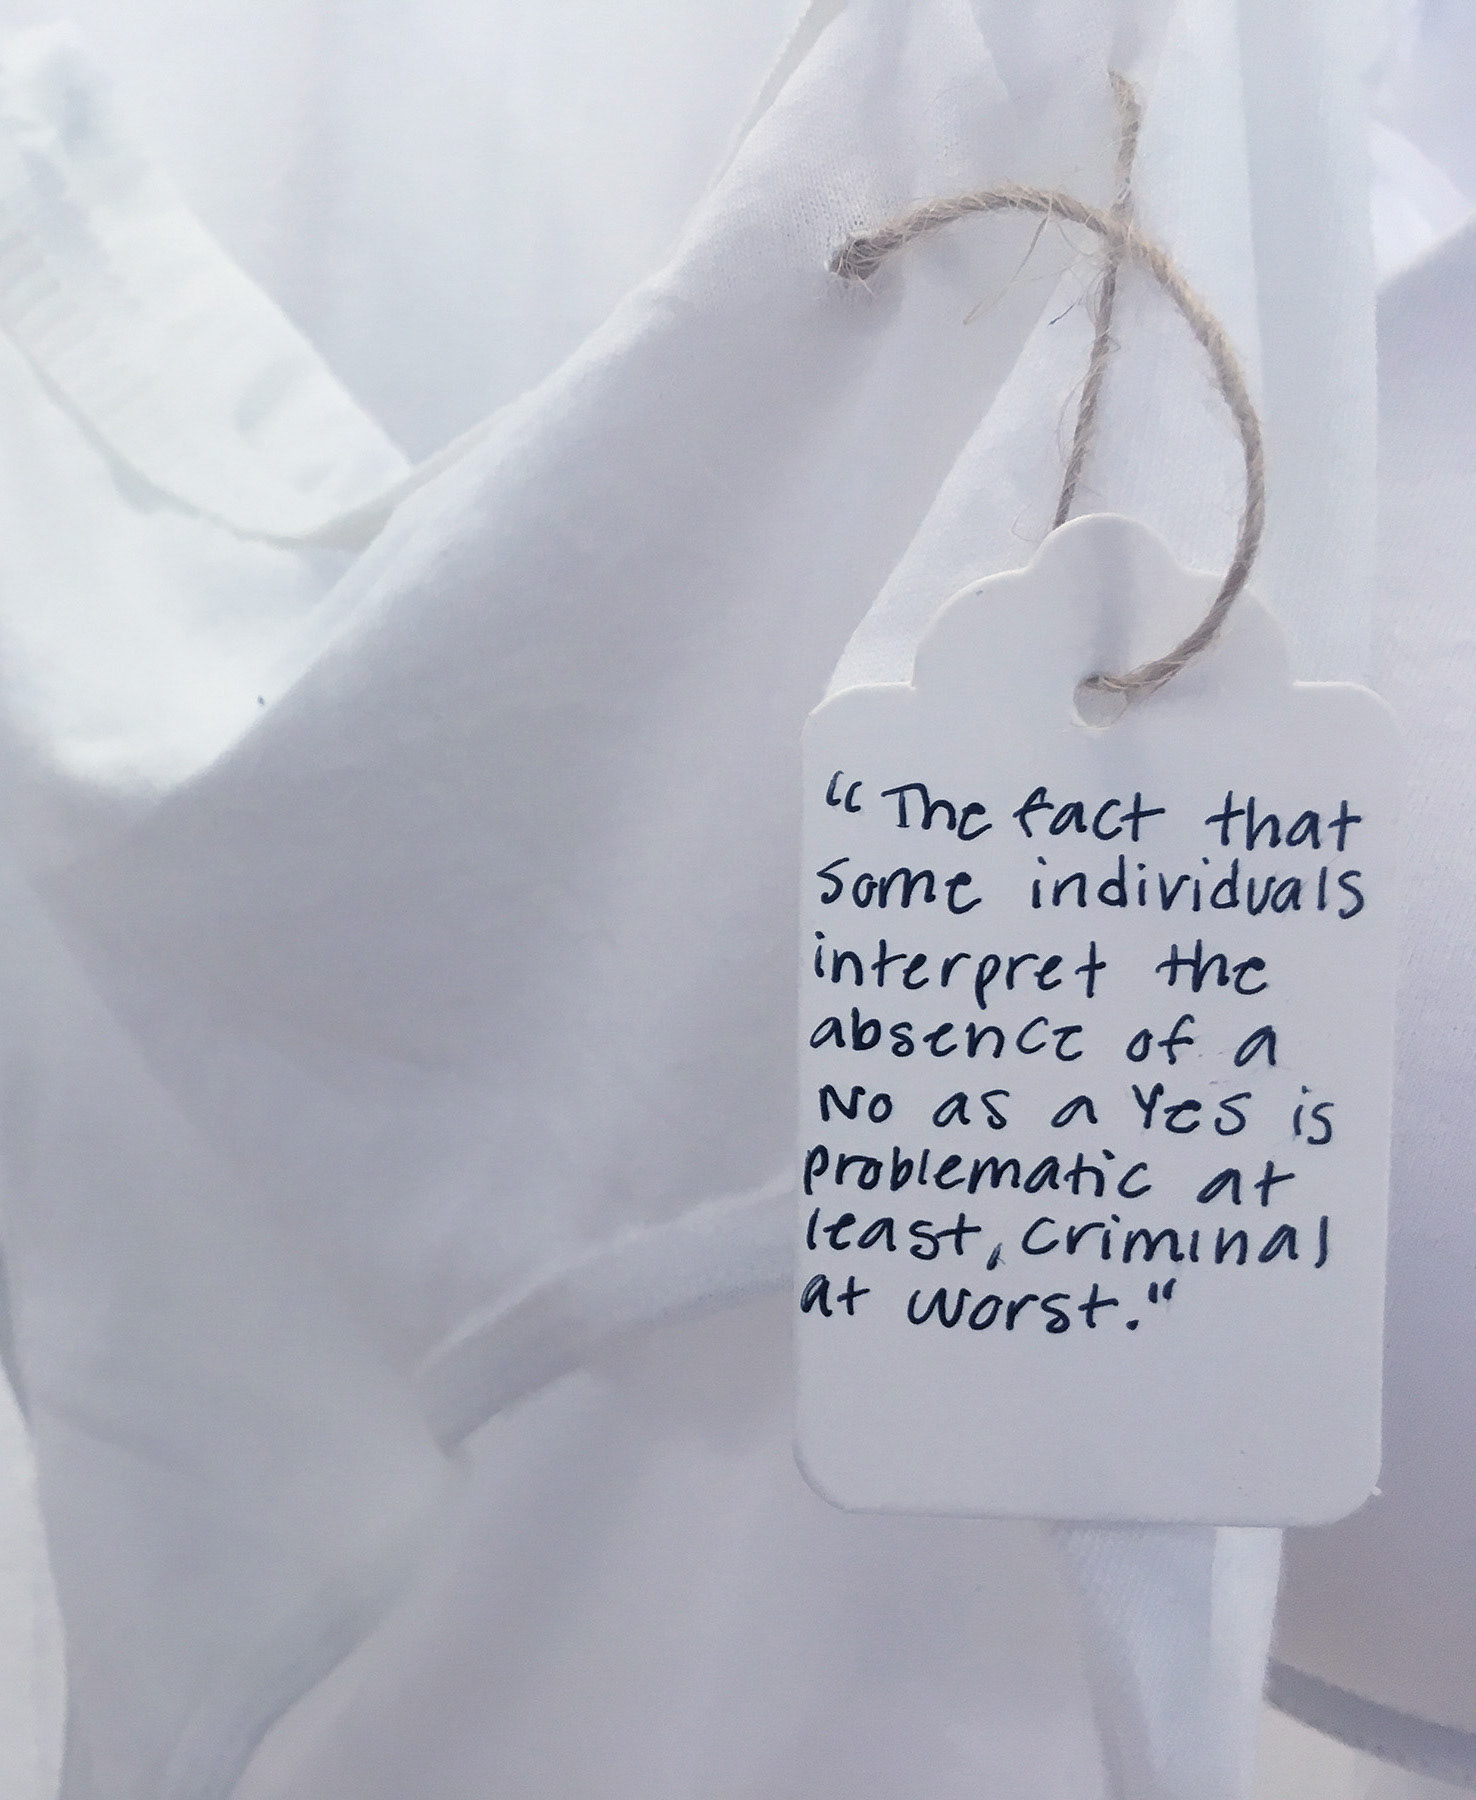 "The fact that
some individuals
interpret the
absence of a
No as a Yes is
problematic at
least, criminal
at worst."